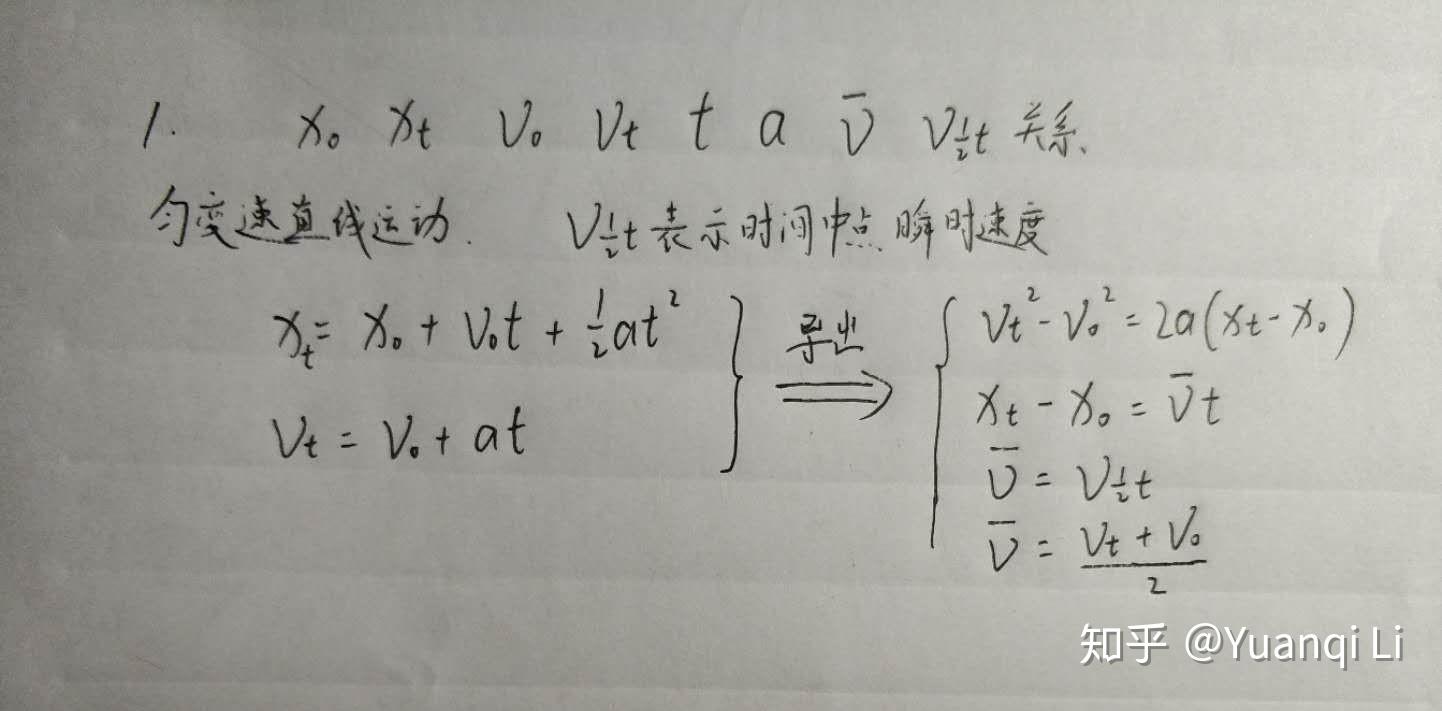 1. x₀ xₜ v₀ vₜ t a v̄ v½t 关系.
匀变速直线运动. v½t表示时间中点瞬时速度
xₜ = x₀ + v₀t + ½at²
vₜ = v₀ + at
导出
vₜ² - v₀² = 2a(xₜ - x₀)
xₜ - x₀ = v̄t
v̄ = v½t
v̄ = (vₜ + v₀)/2
知乎 @Yuanqi Li